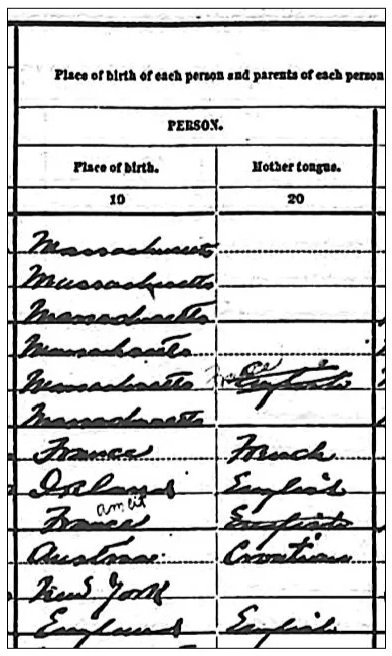 Place of birth of each person and parents of each person
PERSON.
Place of birth. Mother tongue.
19 20
Massachusetts
Massachusetts
Massachusetts
Massachusetts
Massachusetts English
Massachusetts
France French
Ireland English
am cit
France English
Austria Croatian
New York
England English